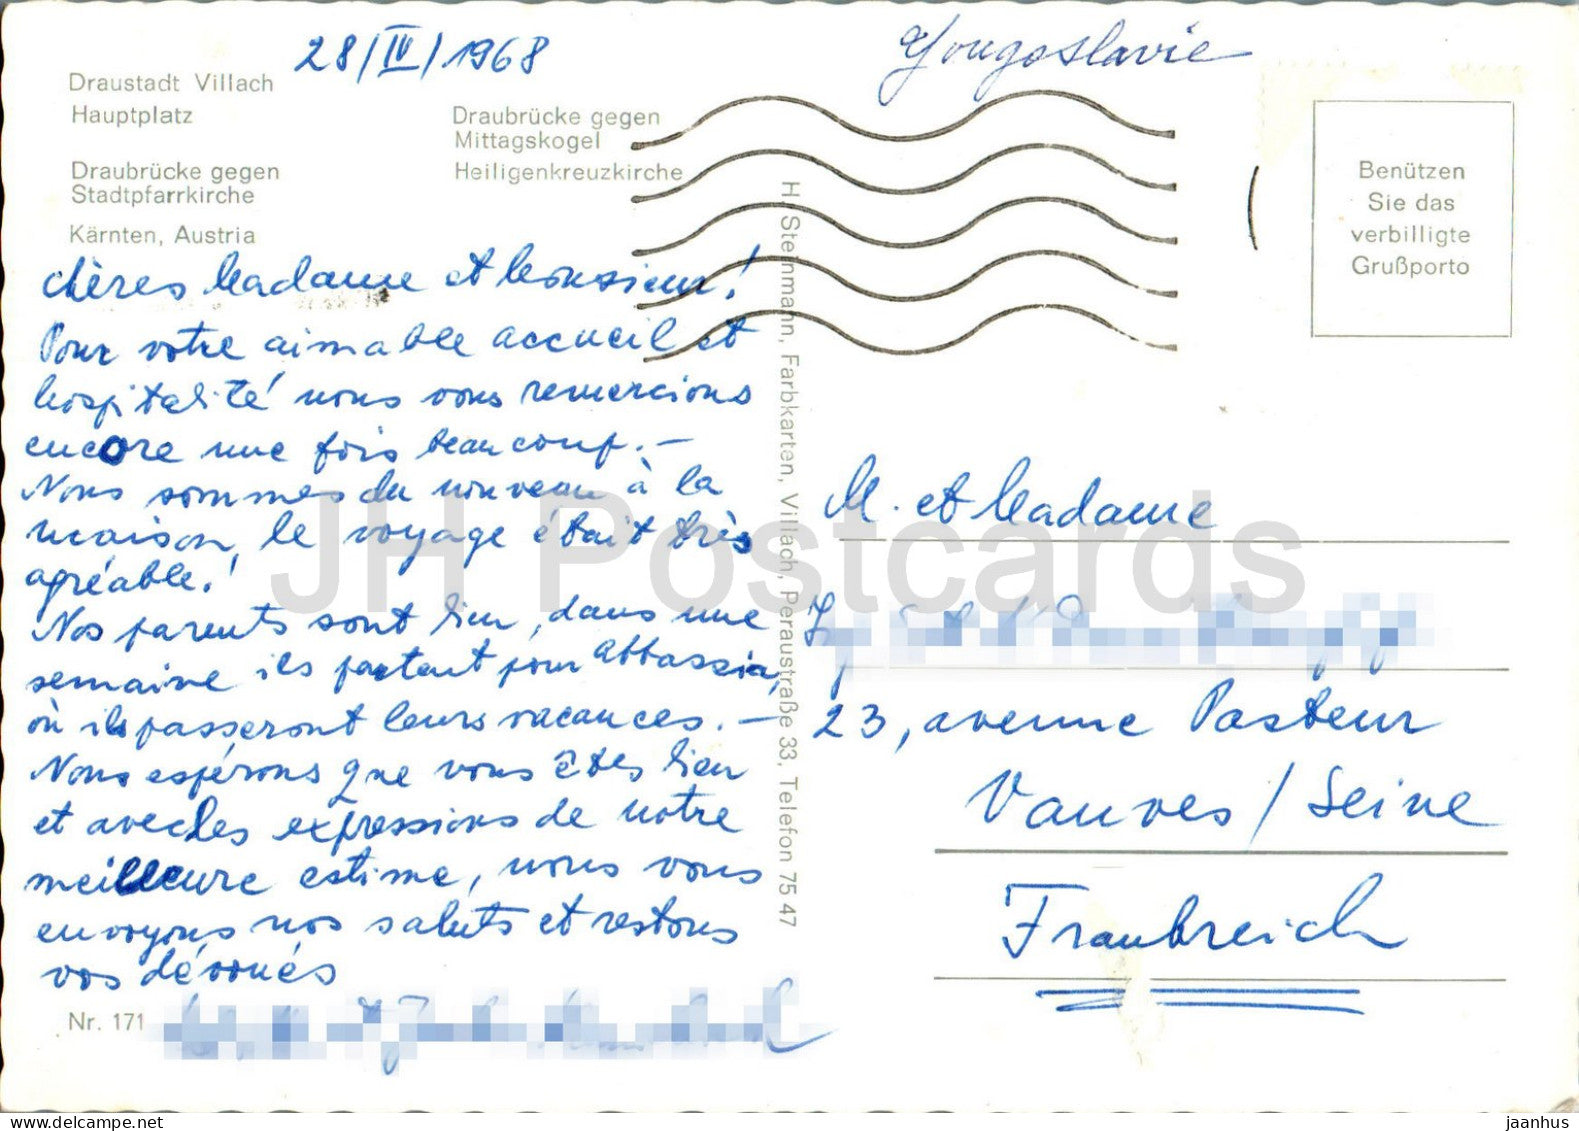 28/IV/1968
Yougoslavie
Draustadt Villach
Hauptplatz
Draubrücke gegen
Stadtpfarrkirche
Kärnten, Austria
Draubrücke gegen
Mittagskogel
Heiligenkreuzkirche
Benützen
Sie das
verbilligte
Grußporto
chères Madame et Monsieur!
Pour votre aimable accueil et
hospitalité nous vous remercions
encore une fois beaucoup. —
Nous sommes du nouveau à la
maison, le voyage était très
agréable!
Nos parents sont bien, dans une
semaine ils partent pour Abbassia,
où ils passeront leurs vacances. —
Nous espérons que vous êtes bien
et avec les expressions de notre
meilleure estime, nous vous
envoyons nos saluts et restons
vos dévoués
Nr. 171
H Steinmann, Farbkarten, Villach, Peraustraße 33, Telefon 75 47
M. et Madame
23, avenue Pasteur
Vanves / Seine
Frankreich
JH Postcards
delcampe.net
jaanhus